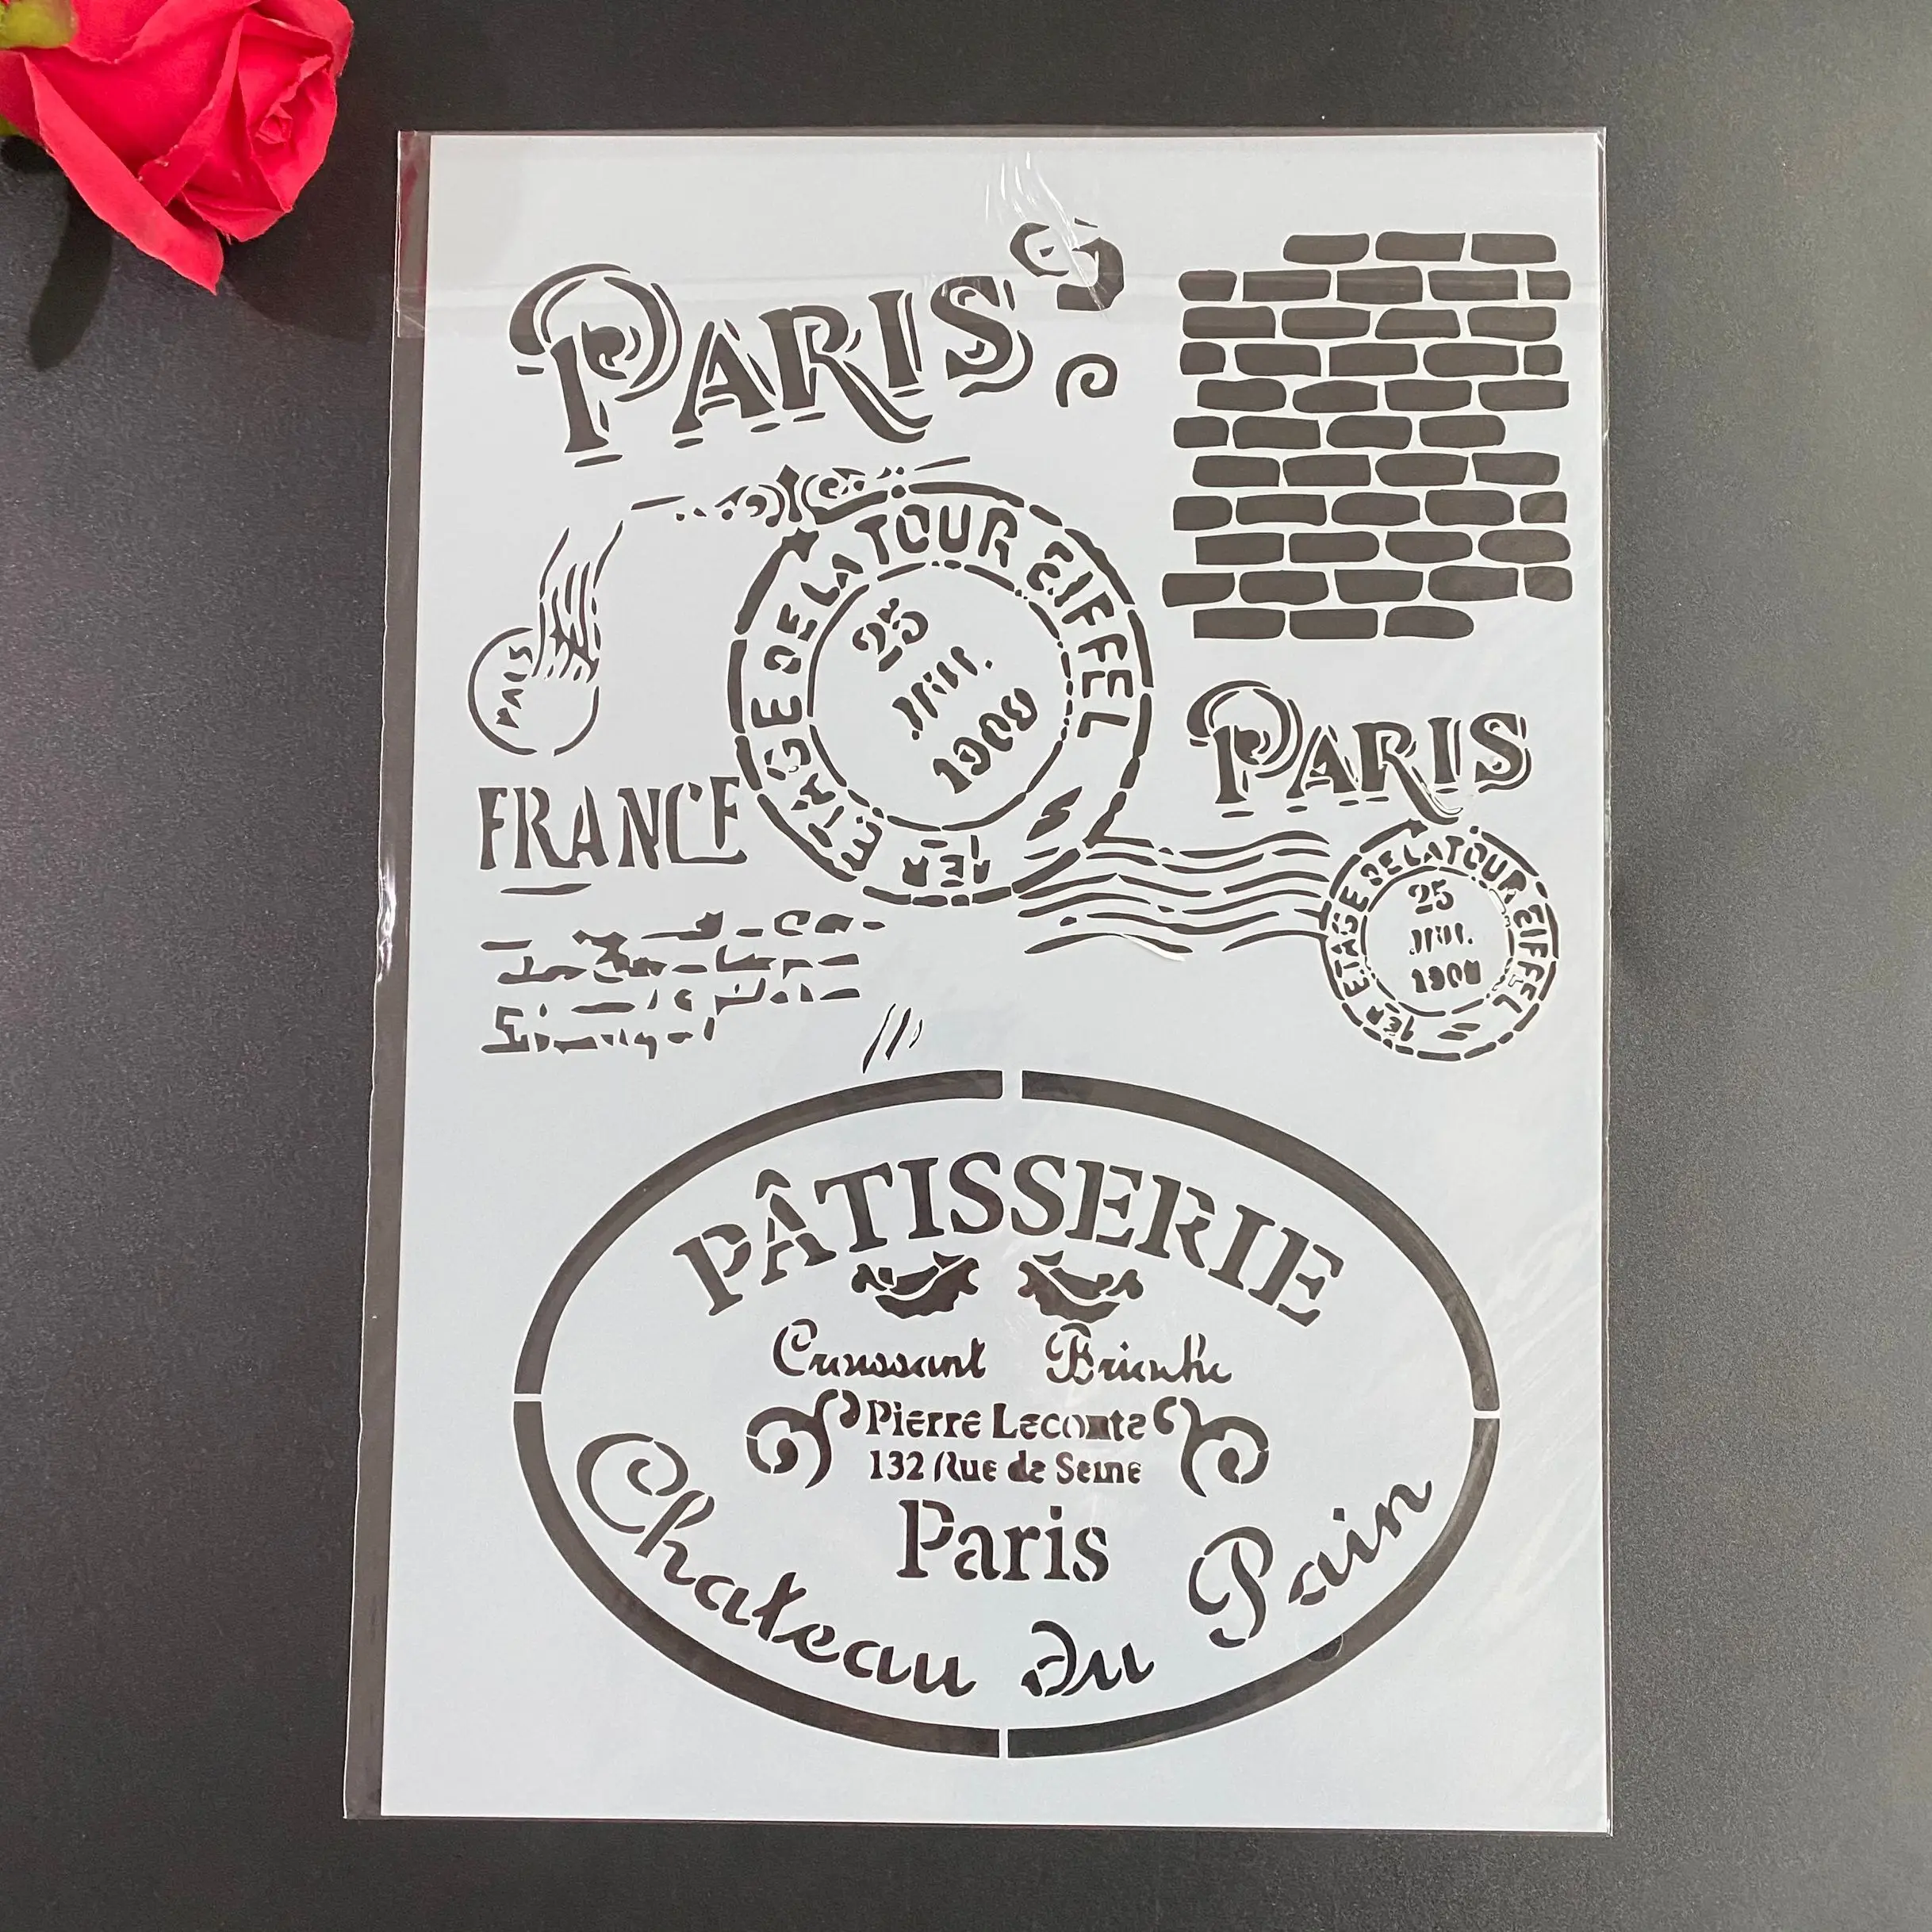 PARIS
1ER ETAGE DE LA TOUR EIFFEL
25
JUIL.
1909
FRANCE
PARIS
1ER ETAGE DE LA TOUR EIFFEL
25
JUIL.
PÂTISSERIE
Croissant Brioche
Pierre Lecomte
132 Rue de Seine
Paris
Chateau du Pain